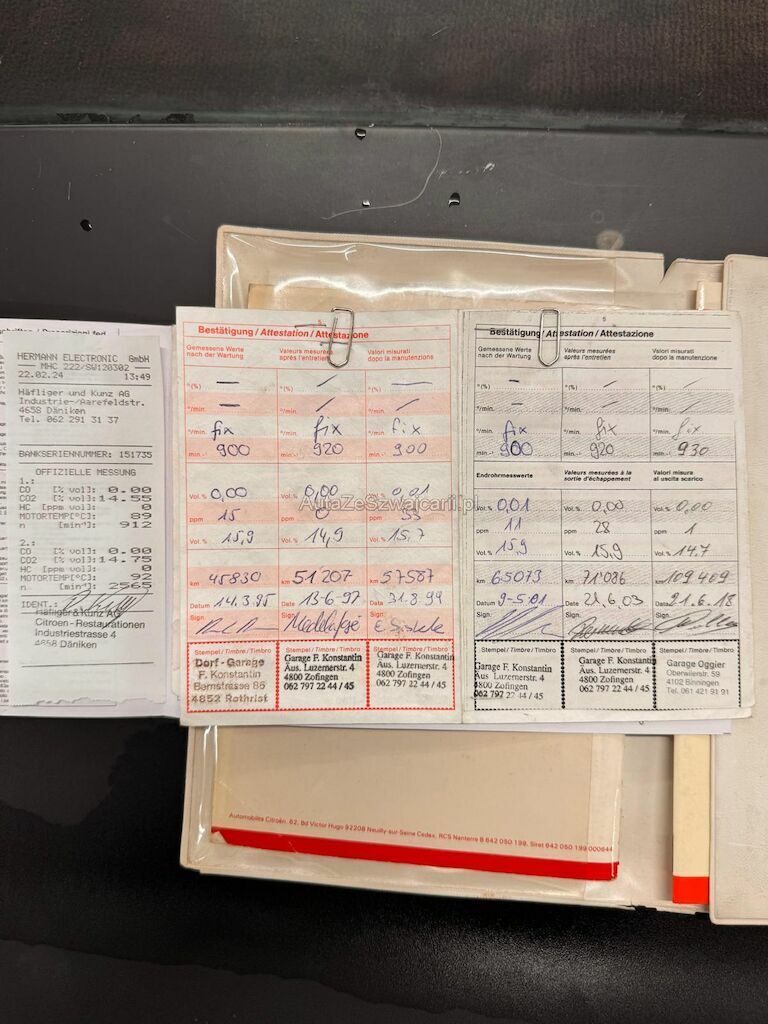 HERMANN ELECTRONIC GmbH
MHC 222/SW120302
22.02.24 13:49
Häfliger und Kunz AG
Industrie-/Aarefeldstr.
4658 Däniken
Tel. 062 291 31 37
BANKSERIENNUMMER: 151735
OFFIZIELLE MESSUNG
1.:
CO [% vol]: 0.00
CO2 [% vol]: 14.55
HC [ppm vol]: 0
MOTORTEMP[°C]: 89
n [min¹]: 912
2.:
CO [% vol]: 0.00
CO2 [% vol]: 14.75
HC [ppm vol]: 0
MOTORTEMP[°C]: 92
n [min¹]: 2565
IDENT.:
Häfliger & Kunz AG
Citroen - Restaurationen
Industriestrasse 4
4658 Däniken
5
Bestätigung / Attestation / Attestazione
Gemessene Werte nach der Wartung Valeurs mesurées après l'entretien Valori misurati dopo la manutenzione
°(%) — °(%) / °(%) —
°/min. — °/min. / °/min. —
°/min. fix °/min. fix °/min. fix
min.-¹ 900 min.-¹ 920 min.-¹ 900
Vol.% 0,00 Vol.% 0,00 Vol.% 0,01
ppm 15 ppm 0 ppm
Vol.% 15,9 Vol.% 14,9 Vol.% 15,7
km 45830 km 51'207 km 57587
Datum 14.3.95 Date 13-6-97 Data 31.8.99
Sign. Sign. Sign.
Stempel / Timbre / Timbro Stempel / Timbre / Timbro Stempel / Timbre / Timbro
Dorf-Garage
F. Konstantin
Bernstrasse 86
4852 Rothrist
Garage F. Konstantin
Äus. Luzernerstr. 4
4800 Zofingen
062 797 22 44 / 45
Garage F. Konstantin
Äus. Luzernerstr. 4
4800 Zofingen
062 797 22 44 / 45
5
Bestätigung / Attestation / Attestazione
Gemessene Werte nach der Wartung Valeurs mesurées après l'entretien Valori misurati dopo la manutenzione
°(%) — °(%) / °(%) /
°/min. — °/min. / °/min. /
°/min. fix °/min. fix °/min. fix
min.-¹ 900 min.-¹ 920 min.-¹ 930
Endrohrmesswerte Valeurs mesurées à la sortie d'échappement Valori misura al uscita scarico
Vol.% 0,01 Vol.% 0,00 Vol.% 0,00
ppm 11 ppm 28 ppm 1
Vol.% 15,9 Vol.% 15,9 Vol.% 14.7
km 65073 km 71'086 km 109409
Datum 9-5.01 Date 21.6.03 Data 21.6.13
Sign. Sign. Sign.
Stempel / Timbre / Timbro Stempel / Timbre / Timbro Stempel / Timbre / Timbro
Garage F. Konstantin
Äus. Luzernerstr. 4
4800 Zofingen
062 797 22 44 / 45
Garage F. Konstantin
Äus. Luzernerstr. 4
4800 Zofingen
062 797 22 44 / 45
Garage Oggier
Oberwilerstr. 59
4102 Binningen
Tel. 061 421 91 91
AutaZeSzwajcarii.pl
Automobiles Citroën. 62, Bd Victor Hugo 92208 Neuilly-sur-Seine Cedex, RCS Nanterre B 642 050 199. Siret 642 050 199 000644